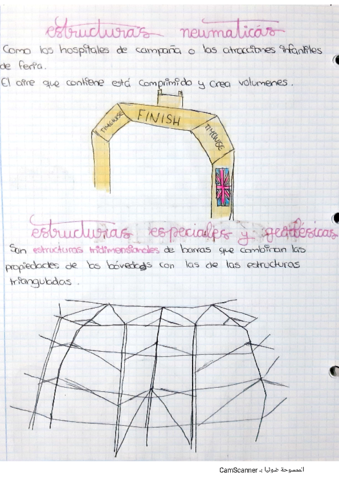 estructuras neumaticas
Como los hospitales de campaña o las atracciones infantiles
de feria.
El aire que contiene está comprimido y crea volumenes.
FINISH
TIMEWISE
estructuras especiales y geodésicas
Son estructuras tridimensionales de barras que combinan las
propiedades de las bóvedas con las de las estructuras
trianguladas.
الممسوحة ضوئيا بـ CamScanner